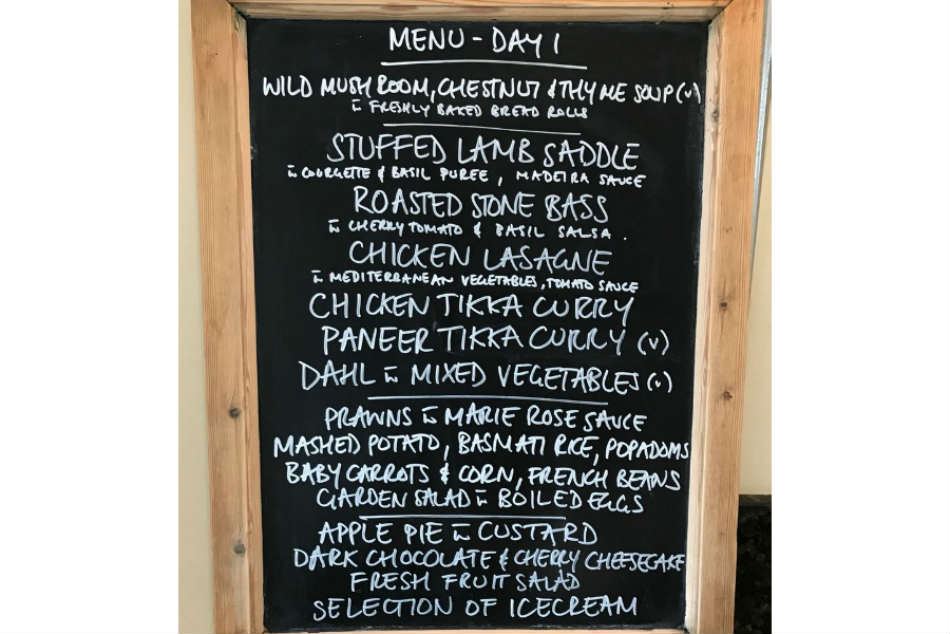 MENU - DAY 1
WILD MUSHROOM, CHESTNUT & THYME SOUP (V)
W FRESHLY BAKED BREAD ROLLS
STUFFED LAMB SADDLE
W COURGETTE & BASIL PUREE, MADEIRA SAUCE
ROASTED STONE BASS
W CHERRY TOMATO & BASIL SALSA.
CHICKEN LASAGNE
W MEDITERRANEAN VEGETABLES, TOMATO SAUCE
CHICKEN TIKKA CURRY
PANEER TIKKA CURRY (V)
DAHL W MIXED VEGETABLES (V)
PRAWNS W MARIE ROSE SAUCE
MASHED POTATO, BASMATI RICE, POPADOMS
BABY CARROTS & CORN, FRENCH BEANS
GARDEN SALAD W BOILED EGGS
APPLE PIE W CUSTARD
DARK CHOCOLATE & CHERRY CHEESECAKE
FRESH FRUIT SALAD
SELECTION OF ICECREAM